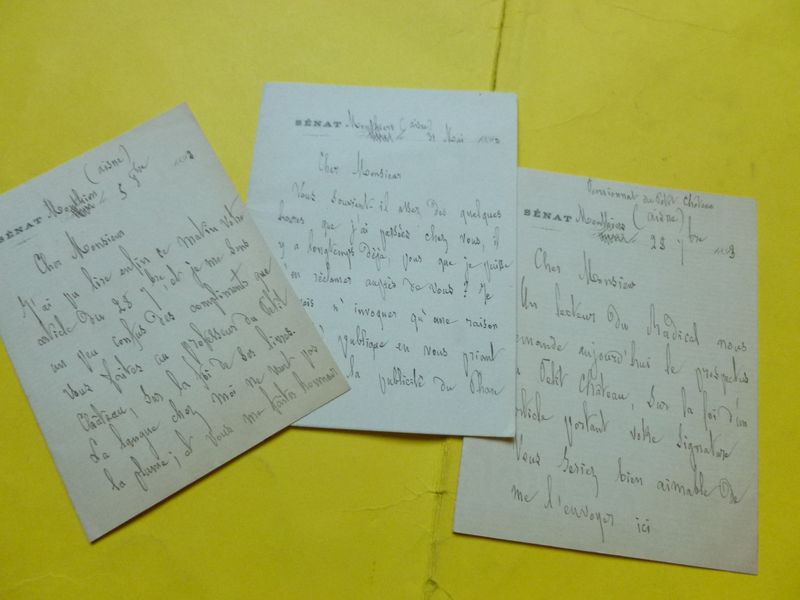 SÉNAT Monthiers (aisne)
5 8bre
Cher Monsieur
J'ai pu lire enfin ce matin votre
article du 28 7bre, et je me sens
un peu confus des compliments que
vous faites au professeur du Petit
Château, sur la foi de ses livres.
La langue chez moi ne vaut pas
la plume; et vous me faites
SÉNAT Monthiers (aisne)
Mai
Cher Monsieur
Vous souvient il assez des quelques
heures que j'ai passées chez vous, il
y a longtemps déjà, pour que je puisse
m'en réclamer auprès de vous? Je
n'invoquer qu'une raison
publique en vous priant
la publicité du Phare
Pensionnat du Petit Château
SÉNAT Monthiers (aisne)
28 7bre
Cher Monsieur
Un lecteur du Radical nous
demande aujourd'hui le prospectus
Petit Château, sur la foi d'un
article portant votre signature
Vous seriez bien aimable de
me l'envoyer ici